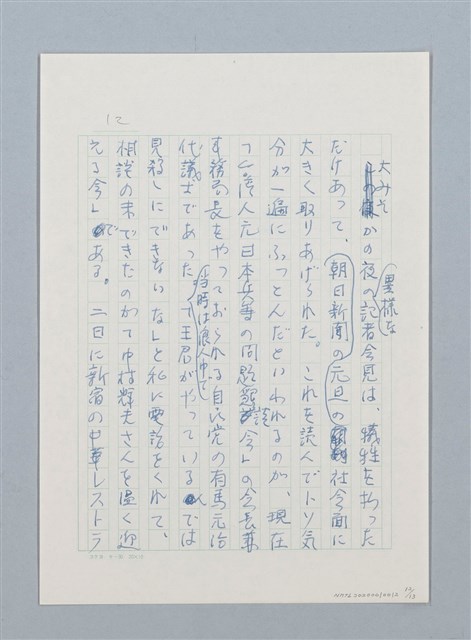 12
大みそかの夜の異様な記者会見は、犠牲を払った
だけあって、朝日新聞の元旦の社会面に
大きく取りあげられた。これを読んでトソ気
分が一遍にふっとんだといわれるのが、現在
「台湾人元日本兵士の問題懇談会」の会長兼
事務局長をやっておられる自民党の有馬元治
代議士であった(当時は浪人中で)。「王君がやっている会では
見殺しにできないな」と私に電話をくれて、
相談の末できたのが「中村輝夫さんを温く迎
える会」である。二日に新宿の中華レストラ
NMTL20000010012
12/13